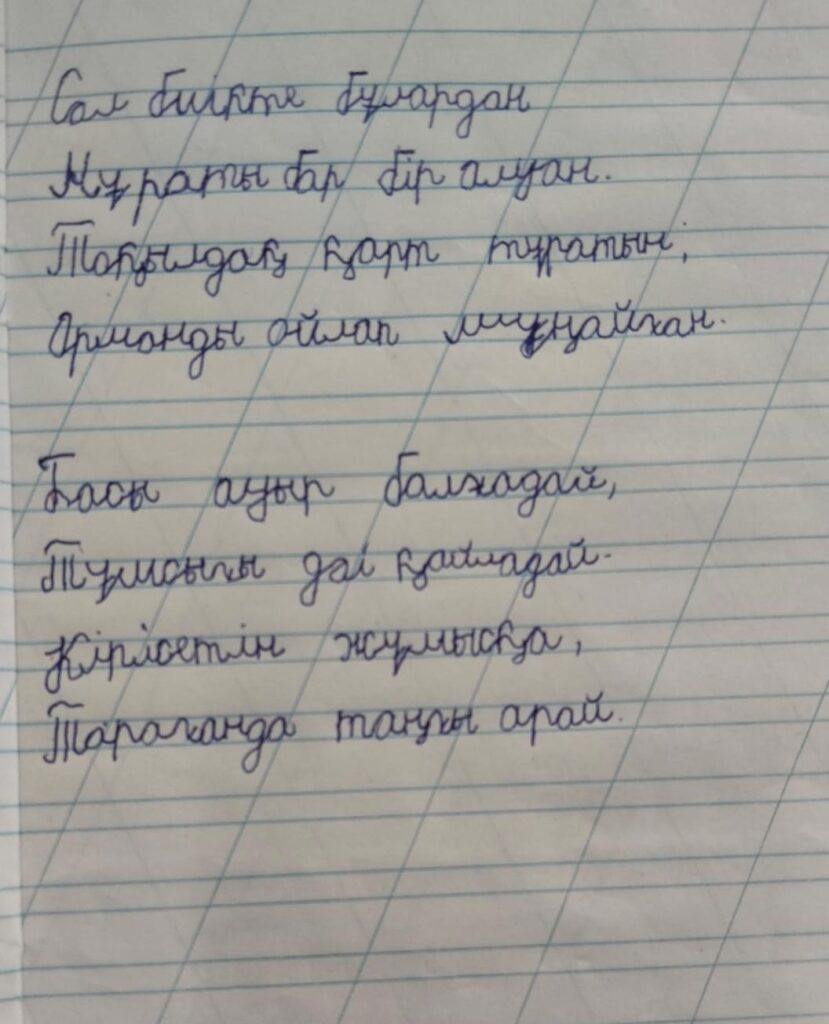 Сол биікте бұлардан
Мұраты бар бір алуан.
Тоқылдақ қарт тұратын,
Орманды ойлап мұңайған.
Басы ауыр балғадай,
Тұмсығы дәл қайладай.
Кірісетін жұмысқа,
Тарағанда таңғы арай.